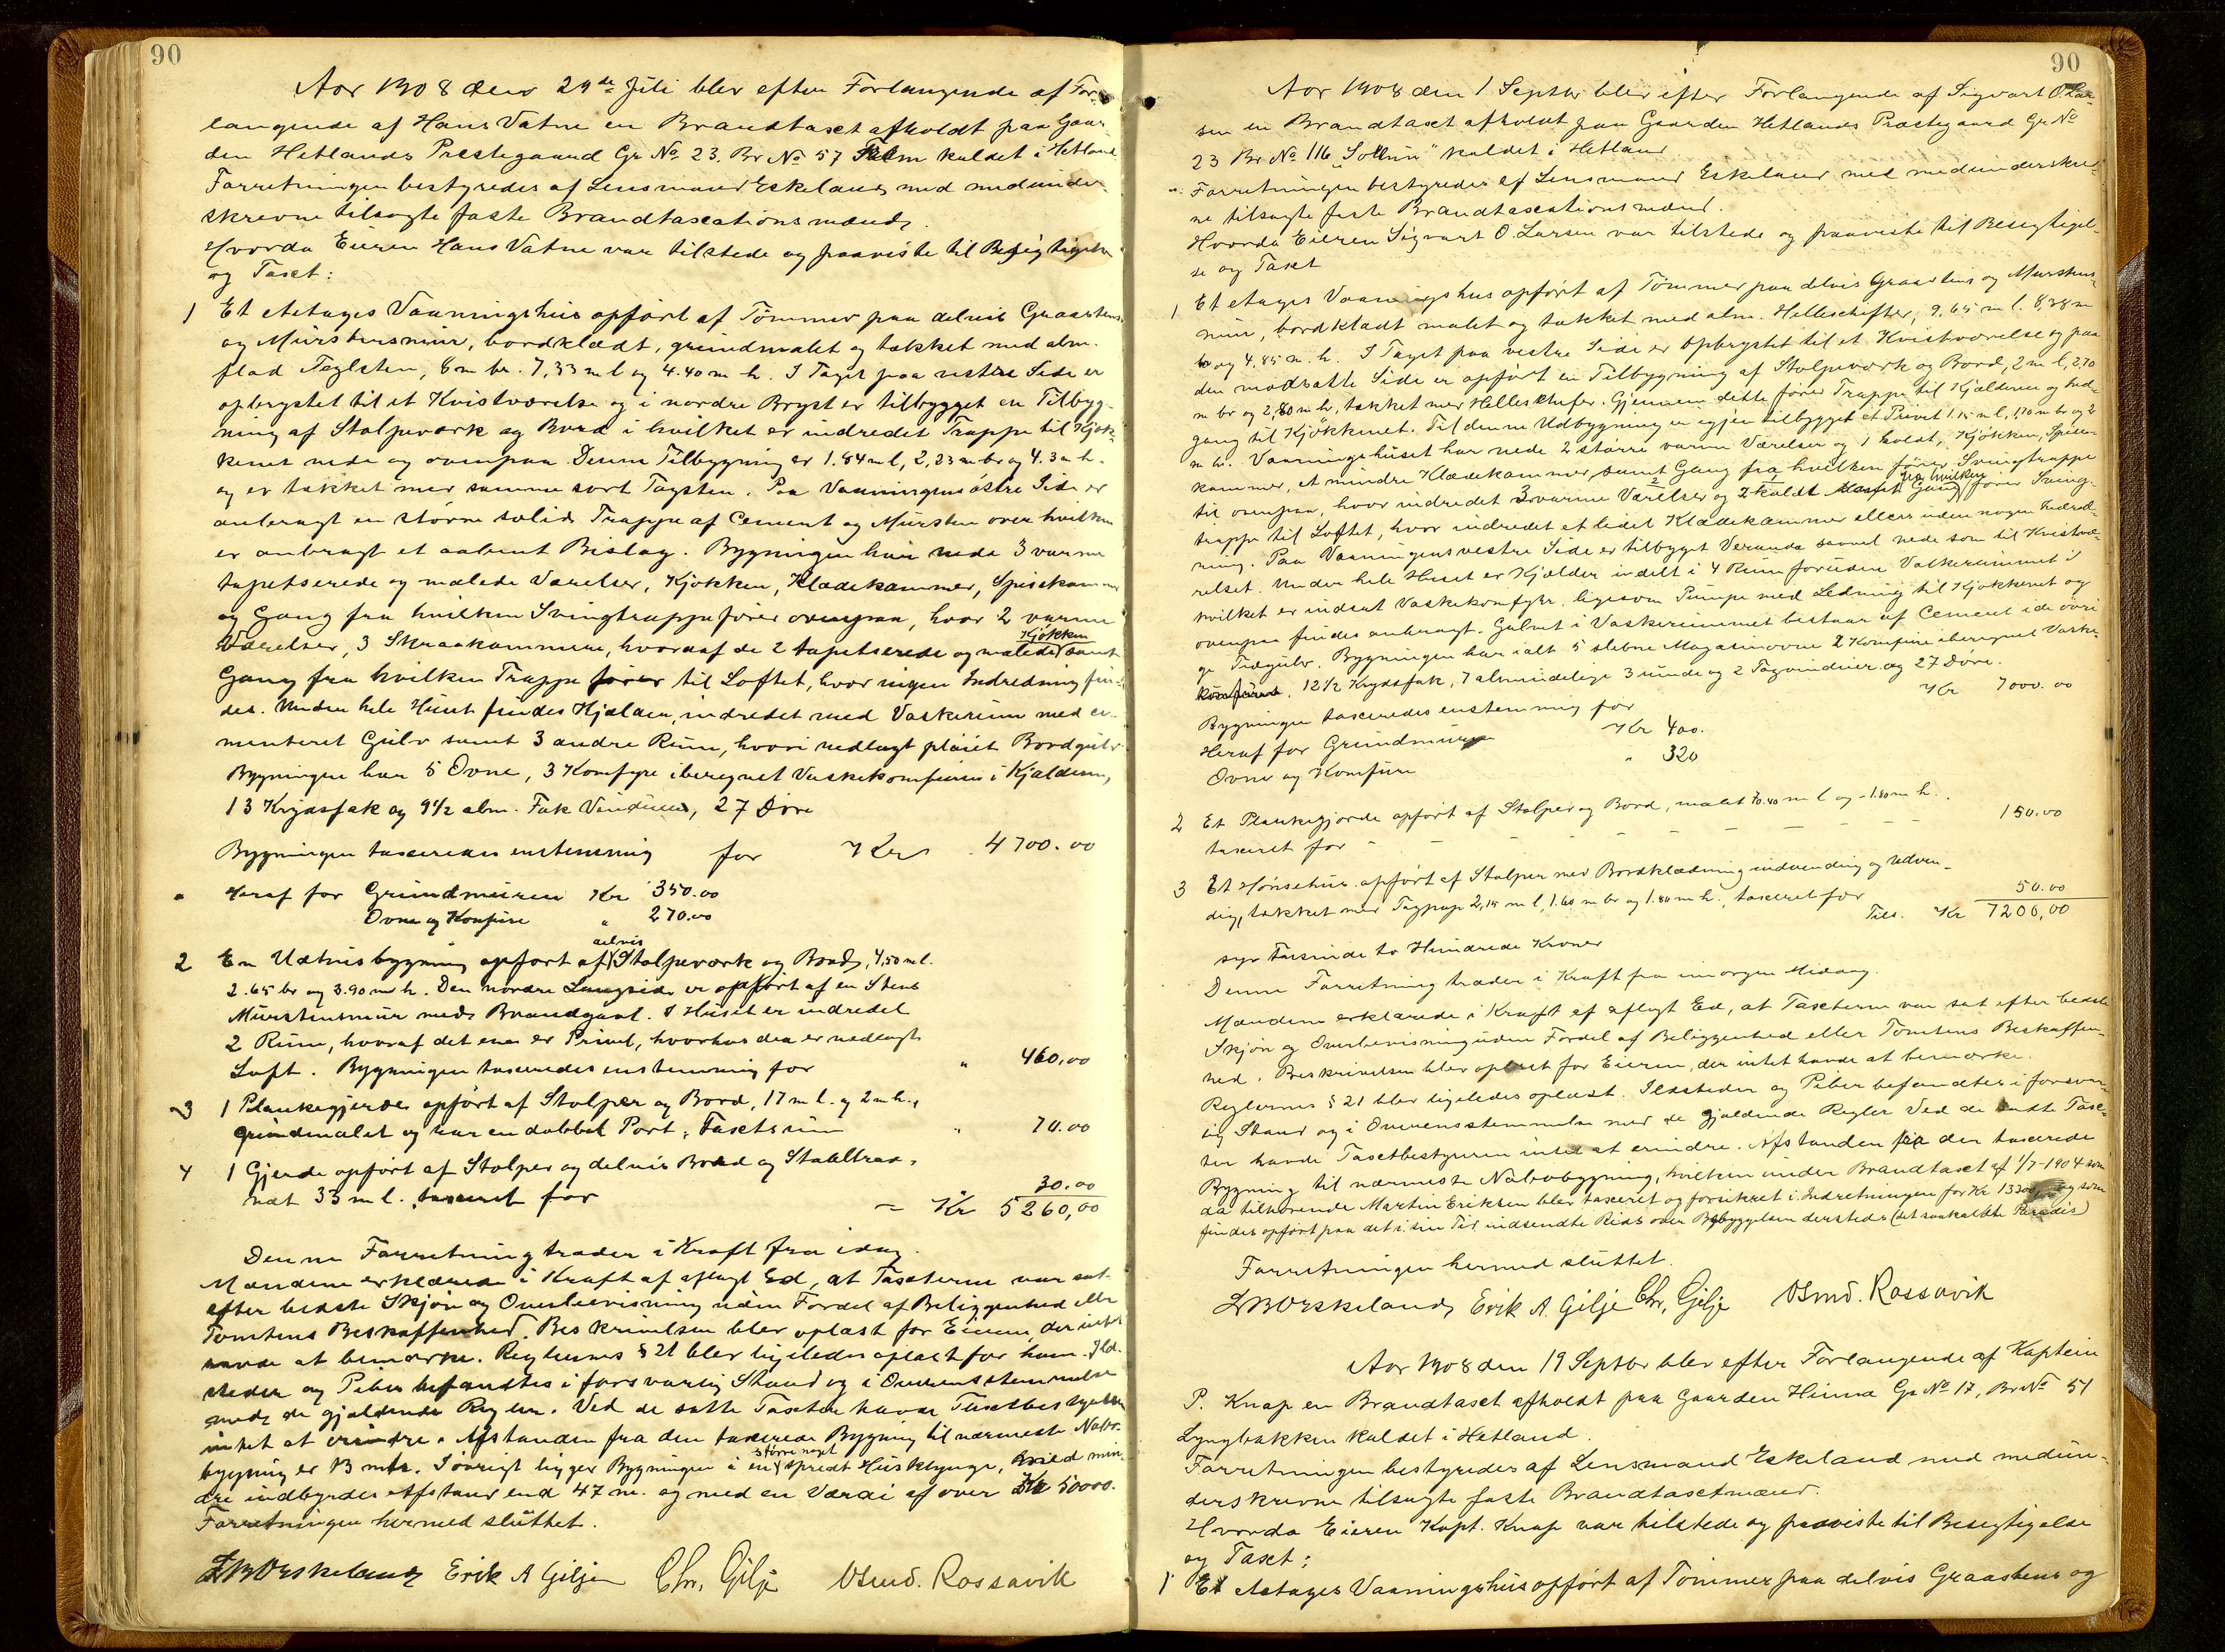 90
Aar 1908 den 29de Juli blev efter Forlangende af For-
langende af Hans Vatne en Brandtaxt afholdt paa Gaar-
den Hetlands Prestegaard Gr No. 23. Br No 57 kaldet i Hetland
Forretningen bestyredes af Lensmand Eskeland med medunder-
skrevne tilsagte faste Brandtaxationsmænd.
Hvorda Eieren Hans Vatne var tilstede og paaviste til Besigtigelse
og Taxt:
1 Et Aetages Vaaningshus opført af Tømmer paa delvis Graastens
og Murstensmur, bordklædt, grundmalet og tækket med alm.
flad Teglsten, 8 m br. 7,33 m l og 4.40 m h. I Taget paa vestre Side er
opbrystet til et Kvistværelse og i nordre Bryst er tilbygget en Tilbyg-
ning af Stolpeværk og Bord i hvilket er indredet Trappe til Kjøk-
kenet nede og ovenpaa. Denne Tilbygning er 1.84 m l, 2,23 m br og 4.3 m h.
og er tækket med samme sort Tagsten. Paa Vaaningens østre Side er
anbragt en større solid Trappe af Cement og Mursten over hvilken
er anbragt et aabent Bislag. Bygningen har nede 3 varme
tapetserede og malede Værelser, Kjøkken, Klædekammer, Spisekammer
og Gang fra hvilken Svingtrappe fører ovenpaa, hvor 2 varme
Værelser, 3 Skraakammere, hvoraf de 2 tapetserede og malede Kjøkken samt
Gang fra hvilken Trappe fører til Loftet, hvor ingen Indredning fin-
des. Under hele Huset findes Kjælder, indredet med Vaskerum med ce-
menteret Gulv samt 3 andre Rum, hvori nedlagt pløiet Bordgulv.
Bygningen har 5 Ovne, 3 Komfyre iberegnet Vaskekomfuren i Kjælderen,
13 Krydsfak og 9 1/2 alm. Fak Vinduer, 27 Døre
Bygningen taxeredes enstemmig for Kr 4700.00
Heraf for Grundmuren Kr 350.00
Ovne og Komfure " 270.00
2 En Udhusbygning opført af delvis Stolpeværk og Bord, 4,50 m l.
2.65 br og 3.90 m h. Den nordre Langside er opført af en Stens
Murstensmur med Brandgavl. I Huset er indredet
2 Rum, hvoraf det ene er Privet, hvorhos der er nedlagt
Loft. Bygningen taxeredes enstemmig for " 460,00
3 1 Plankegjerde opført af Stolper og Bord, 17 m l. og 2 m h.,
grundmalet og har en dobbel Port, Taxtsum " 70.00
4 1 Gjerde opført af Stolper og delvis Bord og Staaltraa-
næt 33 m l. taxeret for " 30.00
Kr 5260,00
Denne Forretning træder i Kraft fra idag.
Mændene erklærede i Kraft af aflagt Ed, at Taxterne var sat
efter bedste Skjøn og Overbevisning uden Fordel af Beliggenhed eller
Tomtens Beskaffenhed. Beskrivelsen blev oplæst for Eieren, der intet
havde at bemærke. Reglernes § 21 blev ligeledes oplæst for ham. Ild-
steder og Piber befandtes i forsvarlig Stand og i Overensstemmelse
med de gjældende Regler. Ved de satte Taxter havde Taxtbestyreren
intet at erindre. Afstanden fra den taxerede Bygning til nærmeste Nabo-
bygning er 13 mtr. Iøvrigt ligger Bygningen i en større noget spredt Husklynge, med min-
dre indbyrdes Afstand end 47 m. og med en Værdi af over Kr 50000.
Forretningen hermed sluttet.
Eskeland Erik A Gilje Chr. Gilje Osmd. Rossavik
90
Aar 1908 den 1 Septbr blev efter Forlangende af Sigvart O. Lar-
sen en Brandtaxt afholdt paa Gaarden Hetlands Prestegaard Gr No
23 Br No. 116 "Solbris" kaldet i Hetland
Forretningen bestyredes af Lensmand Eskeland med medunderskrev-
ne tilsagte faste Brandtaxationsmænd.
Hvorda Eieren Sigvart O. Larsen var tilstede og paaviste til Besigtigel-
se og Taxt
1 Et etages Vaaningshus opført af Tømmer paa delvis Graastens og Murstens-
mur, bordklædt malet og tækket med alm. Helleskifter, 9,65 m l. 8,38 m
b og 4,85 m. h. I Taget paa vestre Side er opbrystet til et Kvistværelse og paa
den modsatte Side er opført en Tilbygning af Stolpeværk og Bord, 2 m l, 2,70
m br og 2,80 m h, tækket med Helleskifer. Gjennem dette fører Trappe til Kjælderen og Ind-
gang til Kjøkkenet. Til denne Udbygning er igjen tilbygget et Privet 1.15 m l, 1,70 m br og 2
m h. Vaaningshuset har nede 2 større varme Værelser og 1 koldt, Kjøkken, Spise-
kammer, et mindre Klædekammer, samt Gang fra hvilken fører Svingtrappe
til ovenpaa, hvor indredet 3 varme Værelser og 2 koldt Gang fra hvilken fører Sving-
trappe til Loftet, hvor indredet et lidet Klædekammer ellers uden nogen Indred-
ning. Paa Vaaningens vestre Side er tilbygget Veranda saavel nede som til Kvistvæ-
relset. Under hele Huset er Kjælder indelt i 4 Rum foruden Vaskerummet i
hvilket er indsat Vaskekomfyr, ligesom Pumpe med Ledning til Kjøkkenet og
ovenpaa findes anbragt. Gulvet i Vaskerummet bestaar af Cement i de øvri-
ge Trægulv. Bygningen har ialt 5 slebne Magasinovne 2 Komfure iberegnet Vaske-
komfuren. 12 1/2 Krydsfak, 7 almindelige 3 runde og 2 Tagvinduer og 27 Døre.
Bygningen taxeredes enstemmig for Kr 7000.00
Heraf for Grundmuren Kr 400.
Ovne og Komfure " 320
2 Et Plankegjerde opført af Stolper og Bord, malet 70.40 m l og 1.80 m h.
taxeret for 150.00
3 Et Hønsehus opført af Stolper med Bordklædning indvendig og udven-
dig, tækket med Tagpap 2,15 m l, 1.60 m br og 1.80 m h., taxeret for 50.00
Tils. Kr 7200,00
syv Tusinde to Hundrede Kroner
Denne Forretning træder i Kraft fra imorgen Midag.
Mændene erklærede i Kraft af aflagt Ed, at Taxterne var sat efter bedste
Skjøn og Overbevisning uden Fordel af Beliggenhed eller Tomtens Beskaffen-
hed. Beskrivelsen blev oplæst for Eieren, der intet havde at bemærke.
Reglernes § 21 blev ligeledes oplæst. Ildsteder og Piber befandtes i forsvar-
lig Stand og i Overensstemmelse med de gjældende Regler. Ved de satte Tax-
ter havde Taxtbestyreren intet at erindre. Afstanden fra den taxerede
Bygning til nærmeste Nabobygning, hvilken under Brandtaxt af 1/7-1904 som
da tilhørende Martin Eriksen blev taxeret og forsikret i Indretningen for Kr 13300 og som
findes opført paa det i sin Tid indsendte Rids over Bebyggelsen dersteds (det saakaldte Paradis)
Forretningen hermed sluttet.
Eskeland Erik A. Gilje Chr. Gilje Osmd. Rossavik
Aar 1908 den 19 Septbr blev efter Forlangende af Kaptein
P. Knap en Brandtaxt afholdt paa Gaarden Hinna Gr No 17, Br No 51
Lyngbakken kaldet i Hetland.
Forretningen bestyredes af Lensmand Eskeland med medun-
derskrevne tilsagte faste Brandtaxtmænd.
Hvorda Eieren Kapt. Knap var tilstede og paaviste til Besigtigelse
og Taxt:
1 Et Aetages Vaaningshus opført af Tømmer paa delvis Graastens og